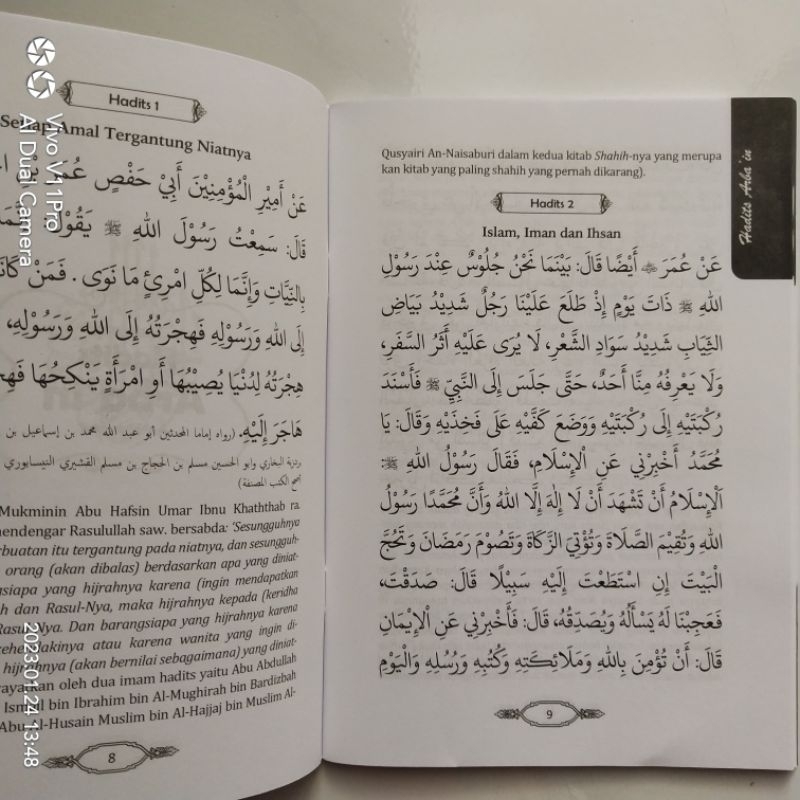 Hadits 1
Setiap Amal Tergantung Niatnya
عَنْ أَمِيْرِ الْمُؤْمِنِيْنَ أَبِيْ حَفْصٍ عُمَرَ بْنِ
قَالَ: سَمِعْتُ رَسُوْلَ اللهِ ﷺ يَقُوْلُ:
بِالنِّيَّاتِ وَإِنَّمَا لِكُلِّ امْرِئٍ مَا نَوَى . فَمَنْ كَانَتْ
إِلَى اللهِ وَرَسُوْلِهِ فَهِجْرَتُهُ إِلَى اللهِ وَرَسُوْلِهِ،
هِجْرَتُهُ لِدُنْيَا يُصِيْبُهَا أَوِ امْرَأَةٍ يَنْكِحُهَا
هَاجَرَ إِلَيْهِ. (رواه إماما المحدثين أبو عبد الله محمد بن إسماعيل بن
البخاري وابو الحسين مسلم بن الحجاج بن مسلم القشيري النيسابوري
أصح الكتب المصنفة)
Mukminin Abu Hafsin Umar Ibnu Khaththab ra.
mendengar Rasulullah saw. bersabda: 'Sesungguhnya
itu tergantung pada niatnya, dan sesungguh-
orang (akan dibalas) berdasarkan apa yang diniat-
yang hijrahnya karena (ingin mendapatkan
dan Rasul-Nya, maka hijrahnya kepada (keridha
Dan barangsiapa yang hijrahnya karena
atau karena wanita yang ingin di-
hijrahnya (akan bernilai sebagaimana) yang diniat-
oleh dua imam hadits yaitu Abu Abdullah
Ismail bin Ibrahim bin Al-Mughirah bin Bardizbah
Abu Al-Husain Muslim bin Al-Hajjaj bin Muslim Al-
8
Qusyairi An-Naisaburi dalam kedua kitab Shahih-nya yang merupa
kan kitab yang paling shahih yang pernah dikarang).
Hadits 2
Islam, Iman dan Ihsan
عَنْ عُمَرَ ﷺ أَيْضًا قَالَ: بَيْنَمَا نَحْنُ جُلُوْسٌ عِنْدَ رَسُوْلِ
اللهِ ﷺ ذَاتَ يَوْمٍ إِذْ طَلَعَ عَلَيْنَا رَجُلٌ شَدِيْدُ بَيَاضِ
الثِّيَابِ شَدِيْدُ سَوَادِ الشَّعْرِ، لَا يُرَى عَلَيْهِ أَثَرُ السَّفَرِ،
وَلَا يَعْرِفُهُ مِنَّا أَحَدٌ، حَتَّى جَلَسَ إِلَى النَّبِيِّ ﷺ فَأَسْنَدَ
رُكْبَتَيْهِ إِلَى رُكْبَتَيْهِ وَوَضَعَ كَفَّيْهِ عَلَى فَخِذَيْهِ وَقَالَ: يَا
مُحَمَّدُ أَخْبِرْنِي عَنِ الْإِسْلَامِ، فَقَالَ رَسُوْلُ اللهِ ﷺ:
اَلْإِسْلَامُ أَنْ تَشْهَدَ أَنْ لَا إِلٰهَ إِلَّا اللهُ وَأَنَّ مُحَمَّدًا رَسُوْلُ
اللهِ وَتُقِيْمَ الصَّلَاةَ وَتُؤْتِيَ الزَّكَاةَ وَتَصُوْمَ رَمَضَانَ وَتَحُجَّ
الْبَيْتَ إِنِ اسْتَطَعْتَ إِلَيْهِ سَبِيْلًا قَالَ: صَدَقْتَ،
فَعَجِبْنَا لَهُ يَسْأَلُهُ وَيُصَدِّقُهُ، قَالَ: فَأَخْبِرْنِي عَنِ الْإِيْمَانِ
قَالَ: أَنْ تُؤْمِنَ بِاللهِ وَمَلَائِكَتِهِ وَكُتُبِهِ وَرُسُلِهِ وَالْيَوْمِ
9
Hadits Arba'in
Vivo V11Pro
AI Dual Camera
2023.01.24 13:48